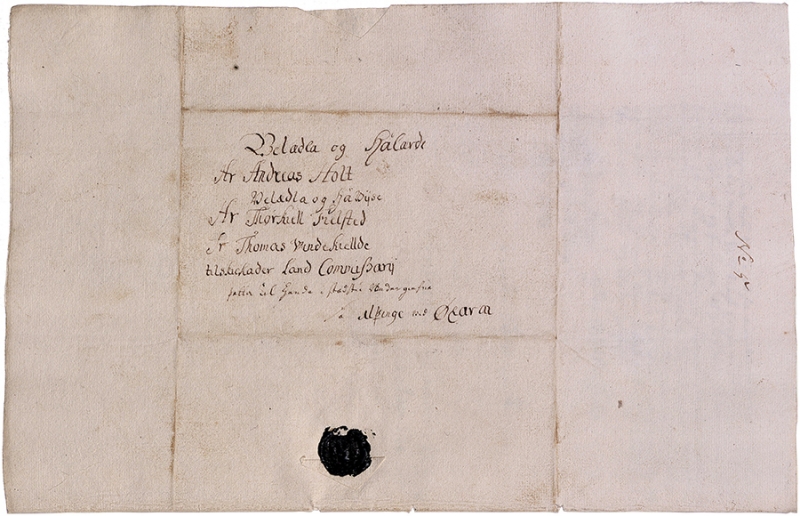 Velædla og Hálærde
Hr Andreas Holt
Velædla og Hávÿse
Hr Thorkiell Fielsted
Hr Thomas Vindekiellde
tilskickader Land Commissarij
þetta til Handa
á Alþinge við Öxar aa
No 92